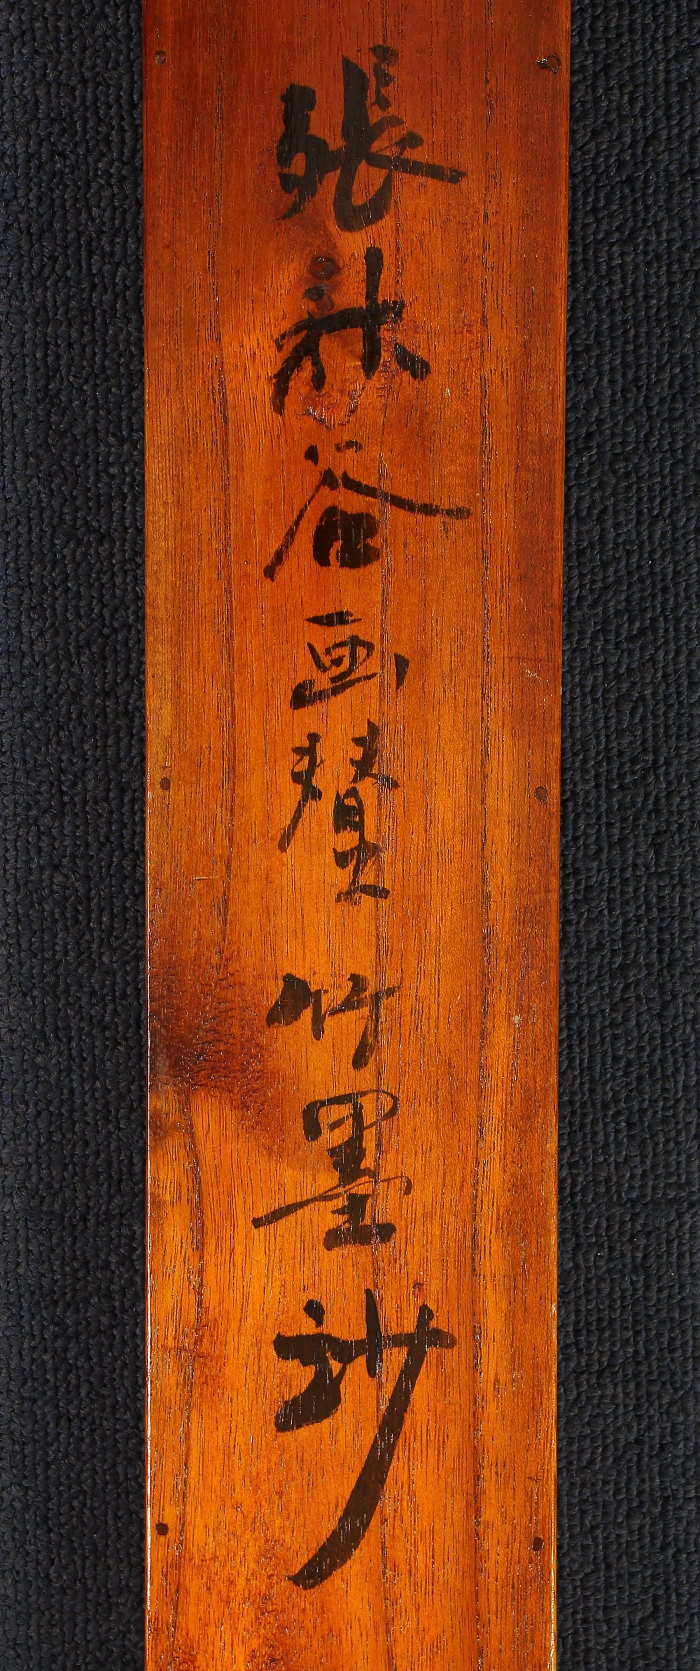 張秋谷画賛竹墨妙